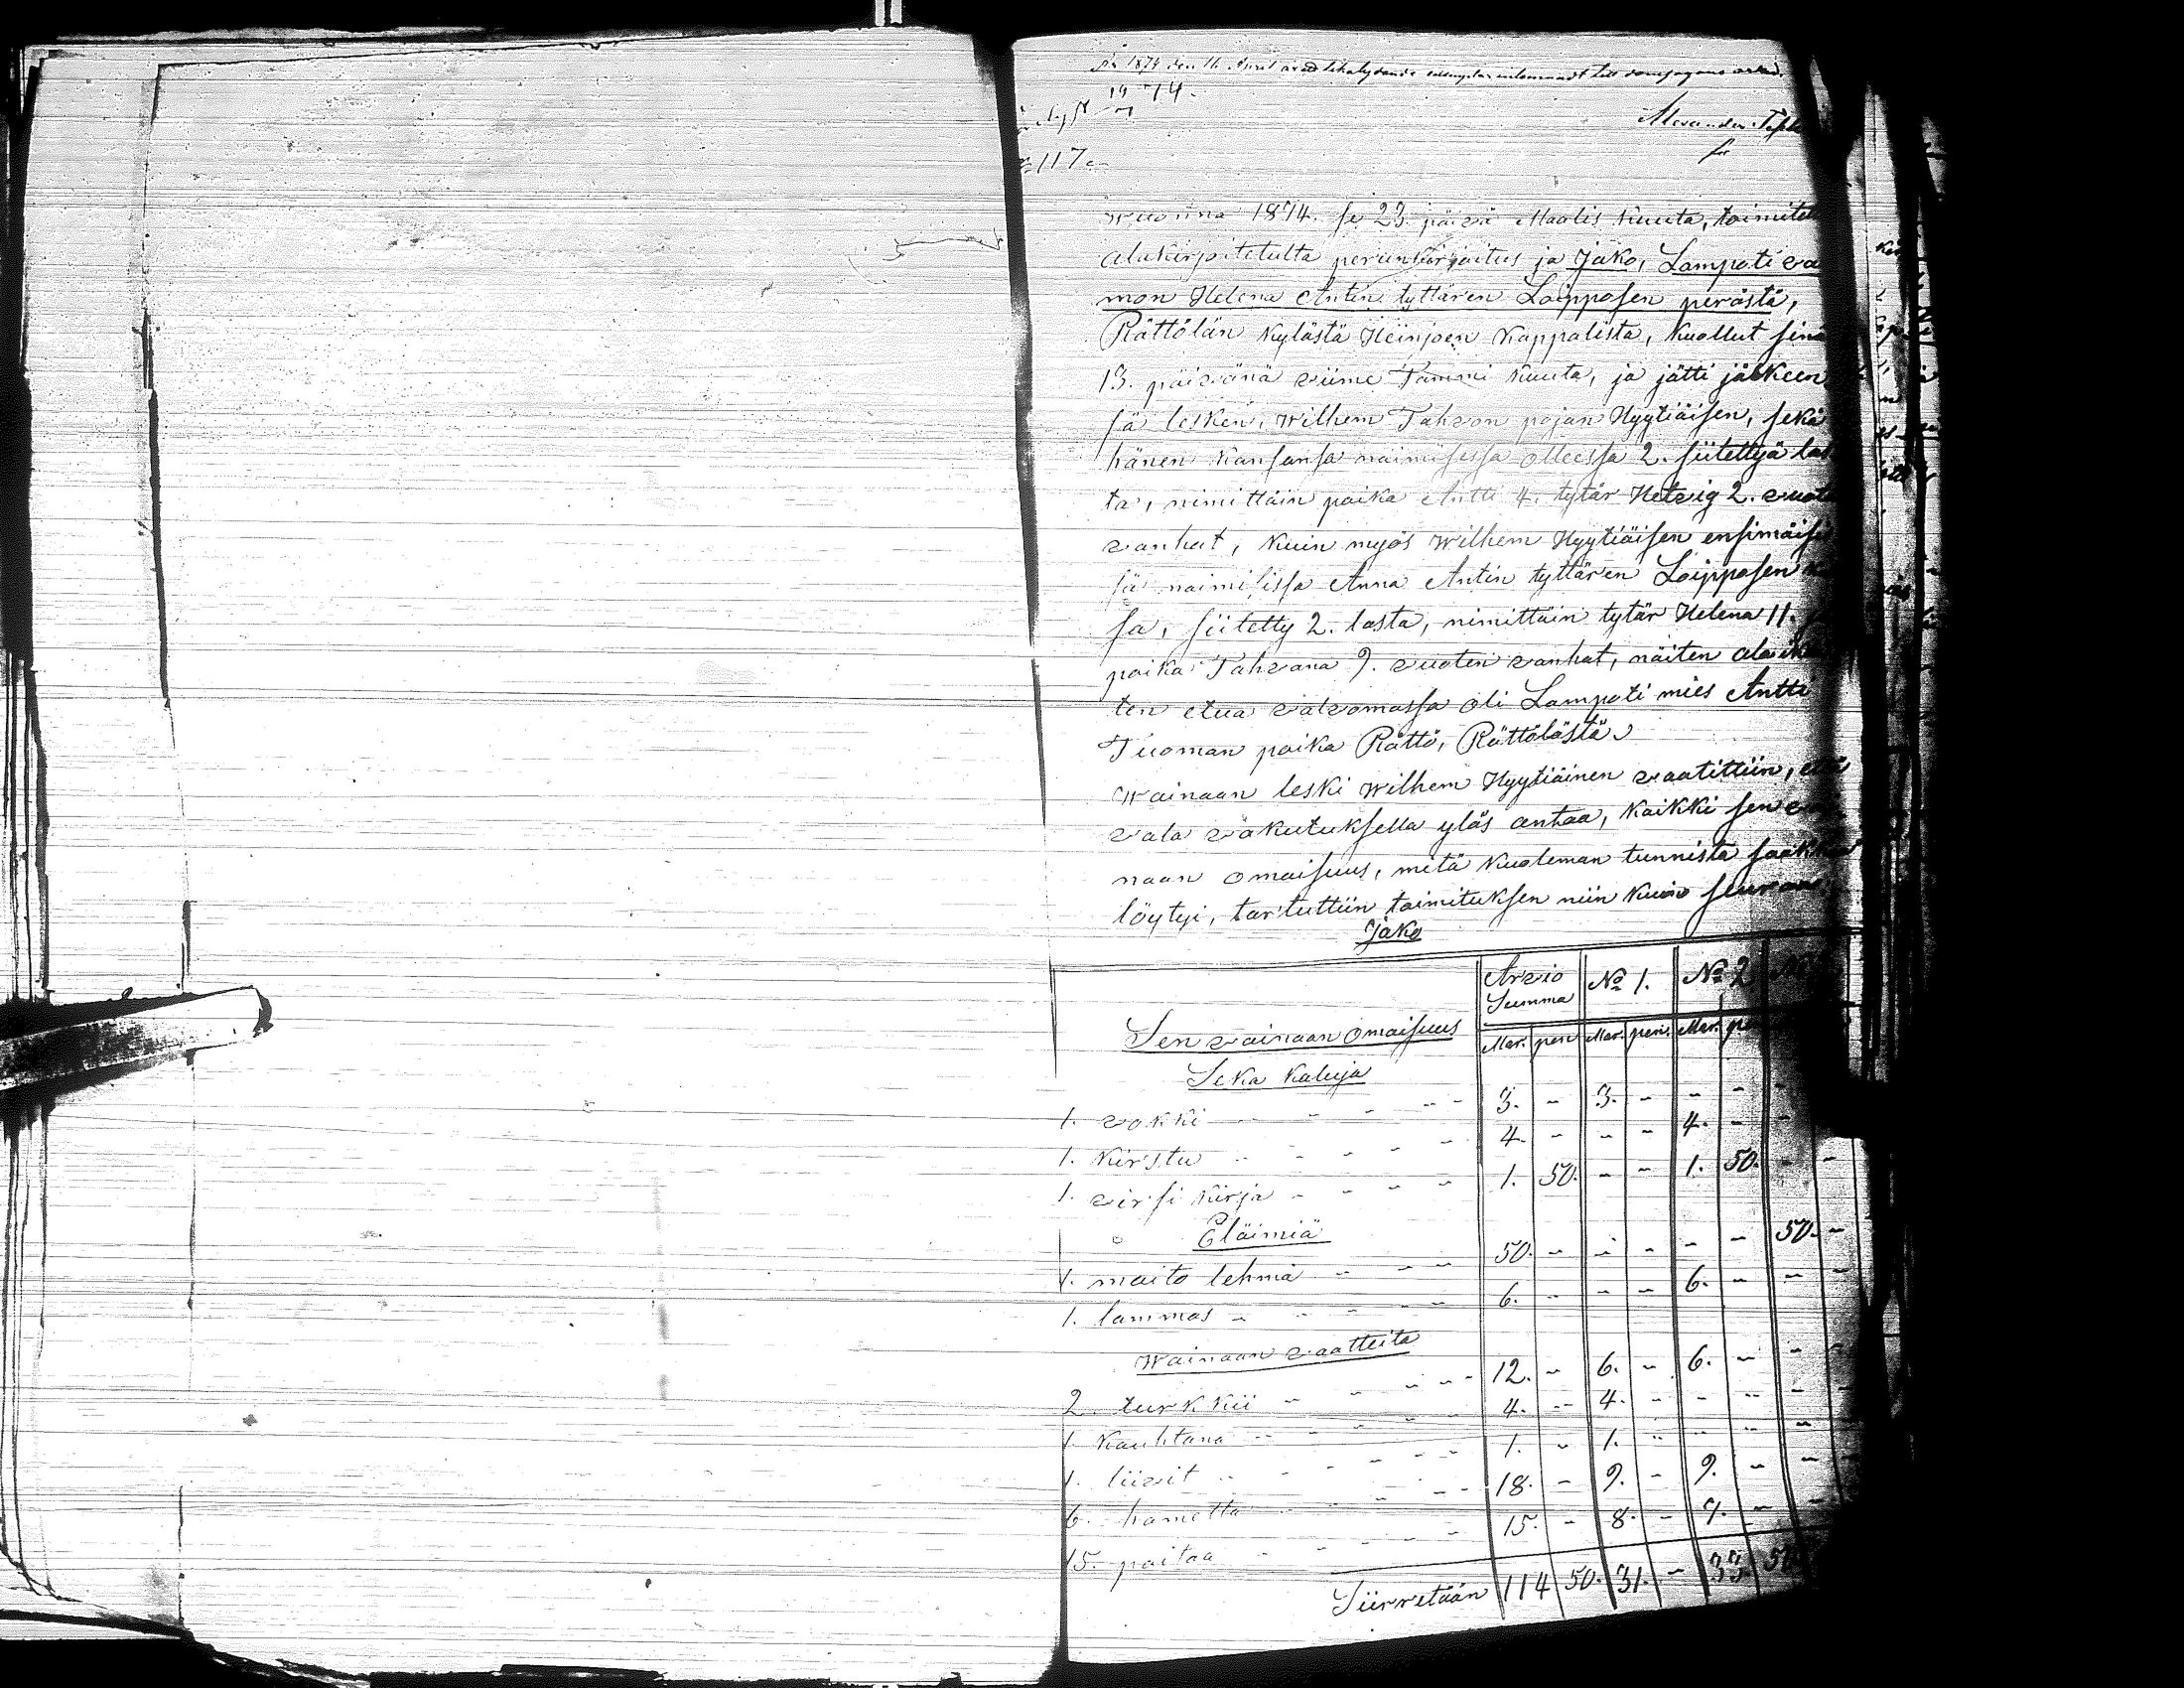 År 1874 den 16 April
19 74.
117
Wuonna 1874. se 23. päivä Maalis Kuuta, toimitet
alakirjoitetulta perunkirjoitus ja Jako, Lampoti va
mon Helena Antin tyttären Loipposen perästä,
Rättölän Kylästä Heinjoen Kappalista, Kuollut sinä
13. päivänä viime Tammi Kuuta, ja jätti jälkeen
sä lesken, Wilhem Tahvon pojan Hyytiäisen, sekä
hänen Kansansa naimisissa olleessa 2. siitettyä las
ta, nimittäin poika Antti 4. tytär Hetvig 2. vuot
vanhat, Kuin myös Wilhem Hyytiäisen ensimäisi
sä naimisissa Anna Antin tyttären Loipposen
sa, siitetty 2. lasta, nimittäin tytär Helena 11.
poika Tahvana 9. vuoten vanhat, näiten ala
ten etua valvomassa oli Lampoti mies Antti
Tuoman poika Rättö, Rättölästä
Wainaan leski Wilhem Hyytiäinen vaatittiin, että
vala vakutuksella ylös antaa, Kaikki sen
naan omaisuus, mitä Kuoleman tunnista
löytyi, tartuttiin toimituksen niin Kuin
Jako
Arvio Summa No 1. No 2
Sen vainaan omaisuus Mar. pen Mar. pen. Mar. pe
Seka Kaluja
1. vokki - - - - - 3. - 3. - - -
1. Kirstu - - - - - 4. - - - 4. -
1. virsi Kirja - - - - 1. 50. - - 1. 50. - -
Eläimiä
1. maito lehmä - - - 50. - - - - - 50. -
1. lammas - - - - - 6. - - - 6. - - -
Wainaan vaatteita
2. turkkii - - - - - 12. - 6. - 6. - -
1. Kauhtana - - - - - 4. - 4. - - - -
1. liivit - - - - - 1. - 1. - - - -
6. hametta - - - - - 18. - 9. - 9. - -
15. paitaa - - - - - 15. - 8. - 7. - -
Siirretään 114 50. 31. - 33. 50